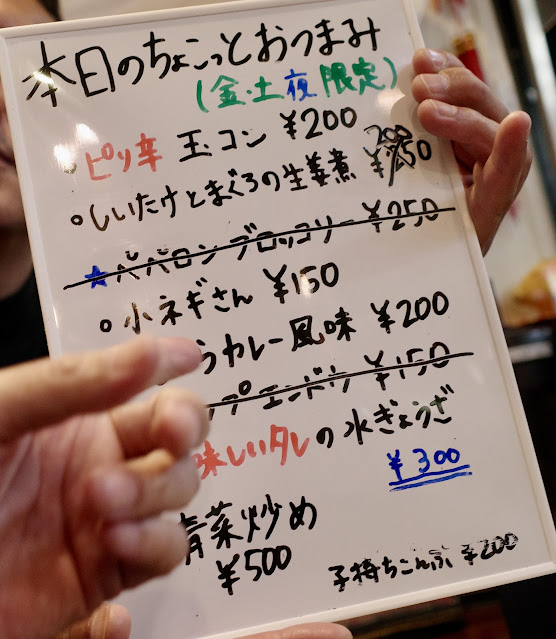 本日のちょこっとおつまみ
(金・土夜限定)
。ピリ辛 玉コン ¥200
。しいたけとまぐろの生姜煮 ¥250 200
★ペペロンブロッコリー ¥250
。小ネギさん ¥150
らカレー風味 ¥200
プエンドウ ¥150
味しいタレの水ぎょうざ
¥300
青菜炒め
¥500
子持ちこんぶ ¥200